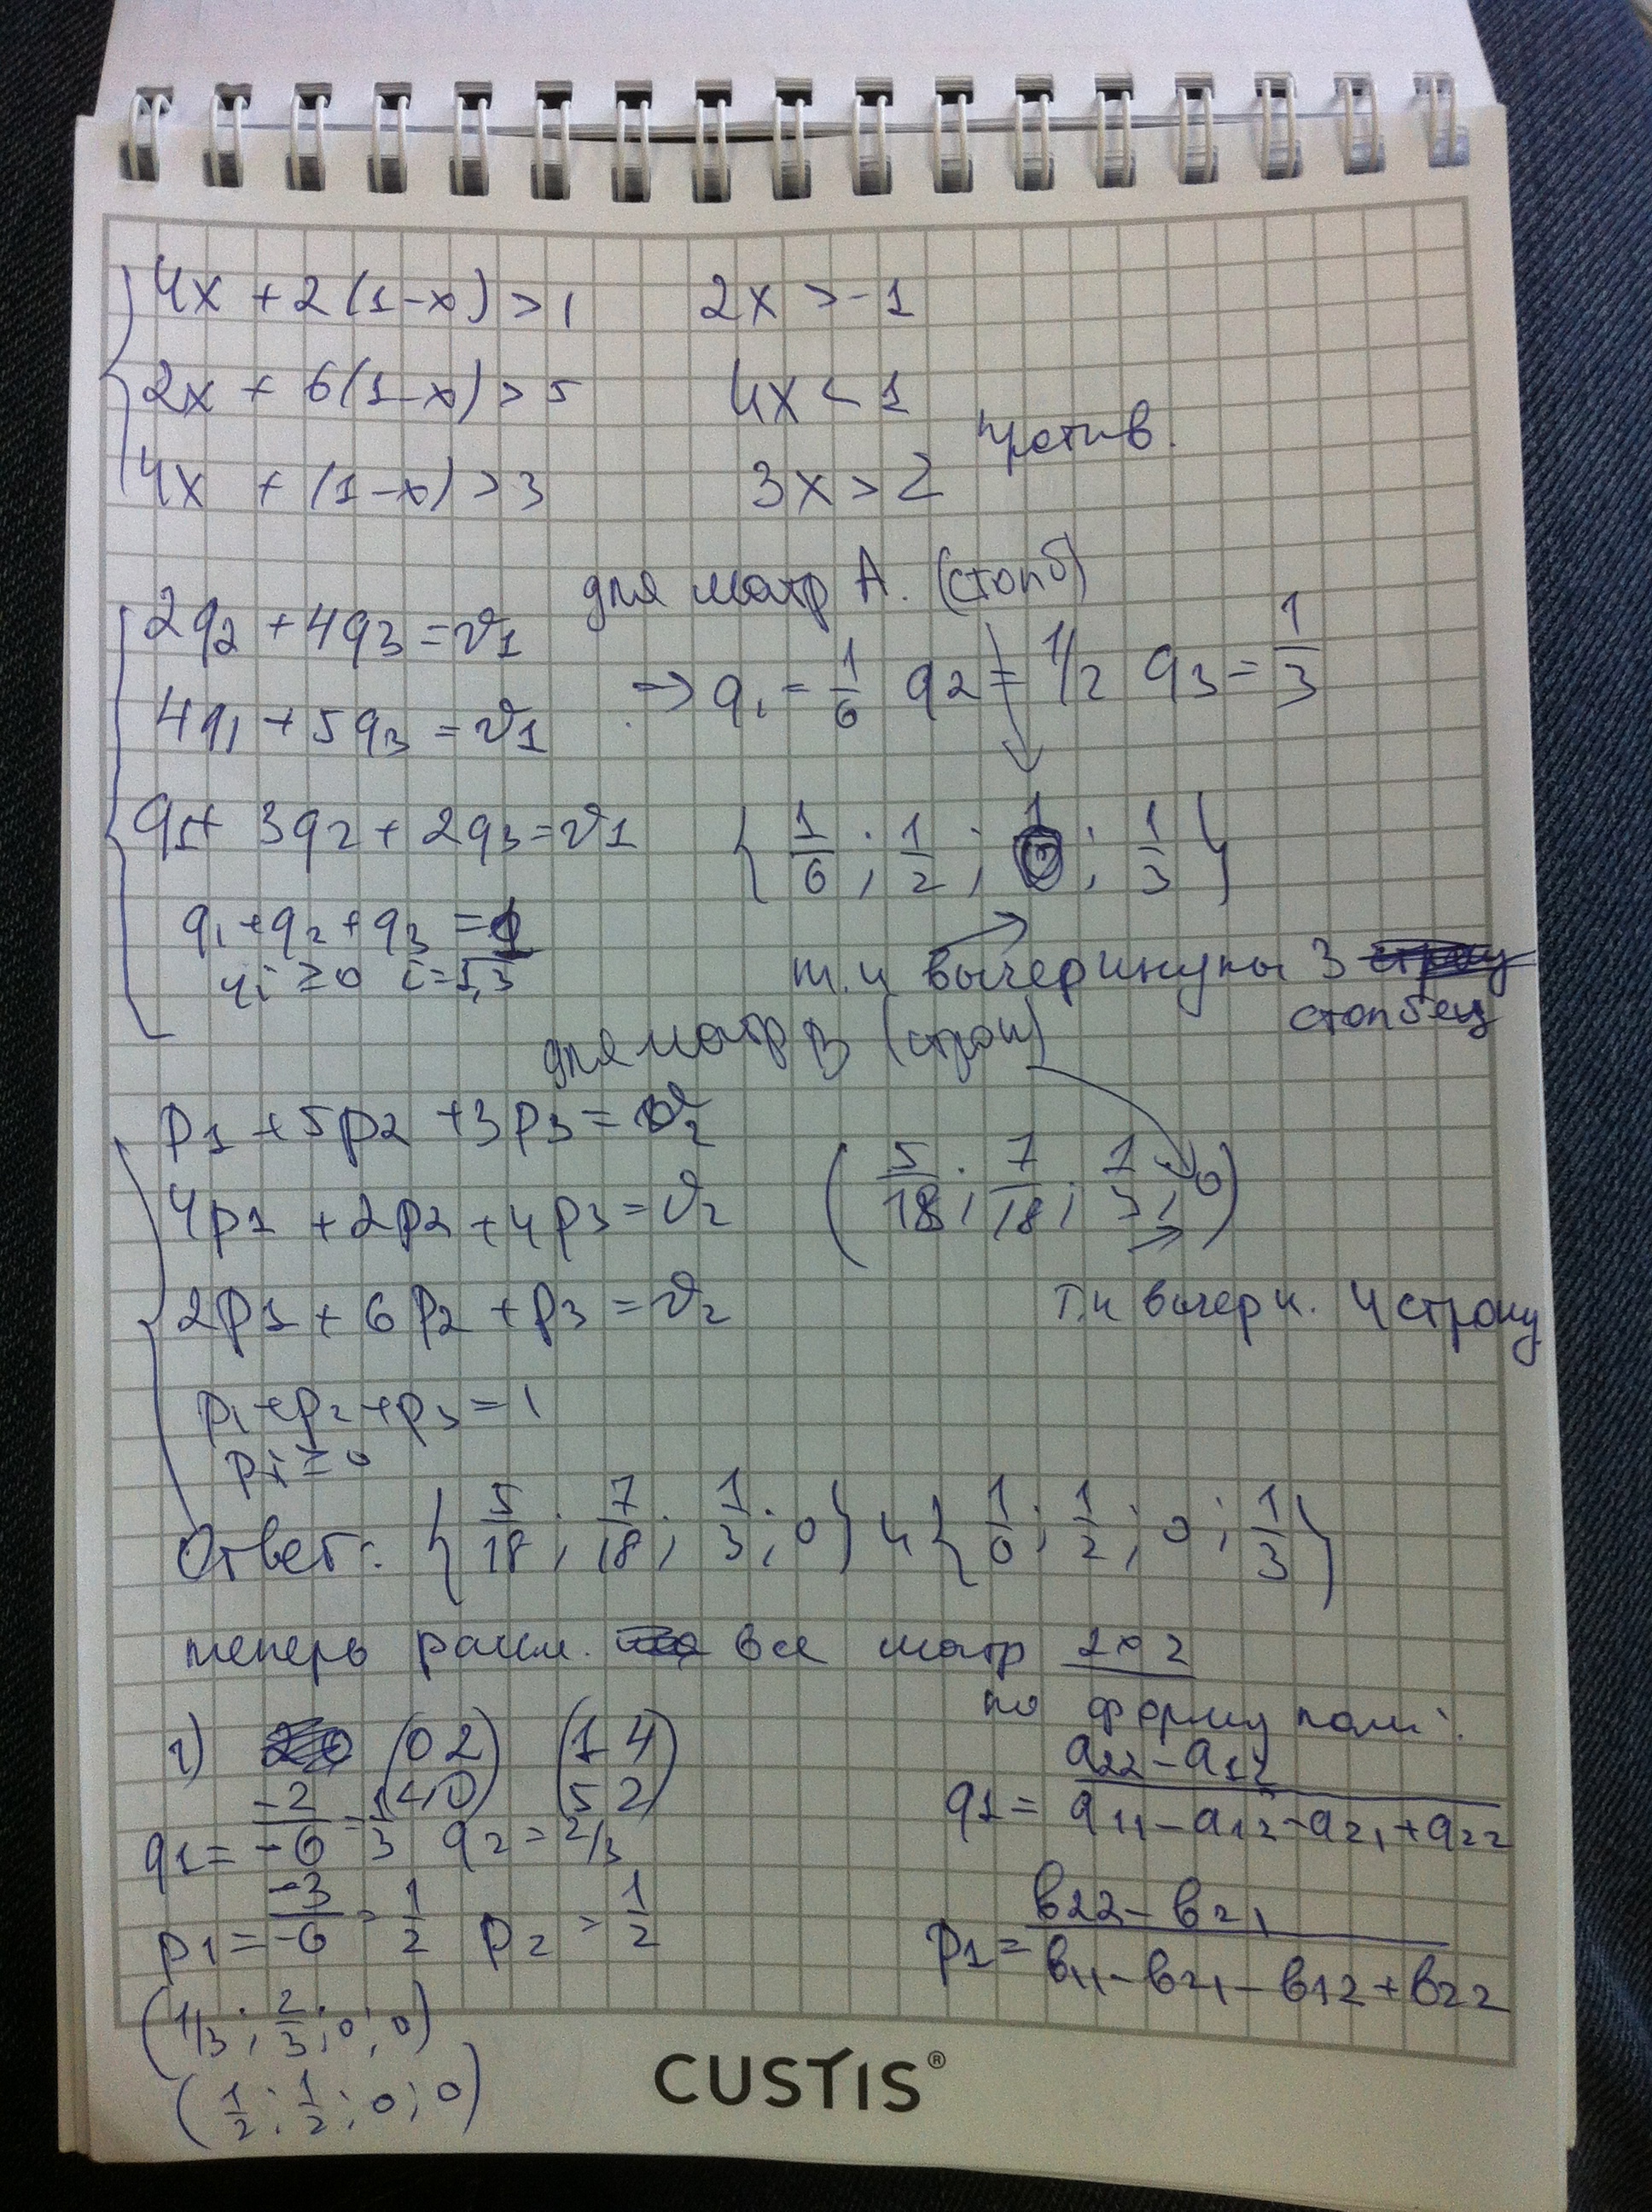 4x + 2(1-x) > 1    2x > -1
2x + 6(1-x) > 5    4x < 1
4x + (1-x) > 3    3x > 2
для матр A. (столб)
2q2 + 4q3 = v1
→ q1 = 1/6 q2 = 1/2 q3 = 1/3
4q1 + 5q3 = v1
q1 + 3q2 + 2q3 = v1    {1/6; 1/2; 0; 1/3}
q1 + q2 + q3 = 1
qi ≥ 0 i = 1,3
т.к вычеркнули 3
столбец
для матр B (строк)
p1 + 5p2 + 3p3 = v2
4p1 + 2p2 + 4p3 = v2    (5/18; 7/18; 1/3; 0)
2p1 + 6p2 + p3 = v2    т.к вычерк. 4 строку
p1 + p2 + p3 = 1
pi ≥ 0
Ответ: {5/18; 7/18; 1/3; 0} и {1/6; 1/2; 0; 1/3}
теперь расм. все матр 2x2
по формулам:
1) (0 2    (1 4
4 0)    5 2)
q1 = -2/-6 = 1/3 q2 = 2/3    q1 = a22 - a12 / a11 - a12 - a21 + a22
p1 = -3/-6 = 1/2 p2 = 1/2    p1 = b22 - b21 / b11 - b21 - b12 + b22
(1/3; 2/3; 0; 0)
(1/2; 1/2; 0; 0)
CUSTIS®